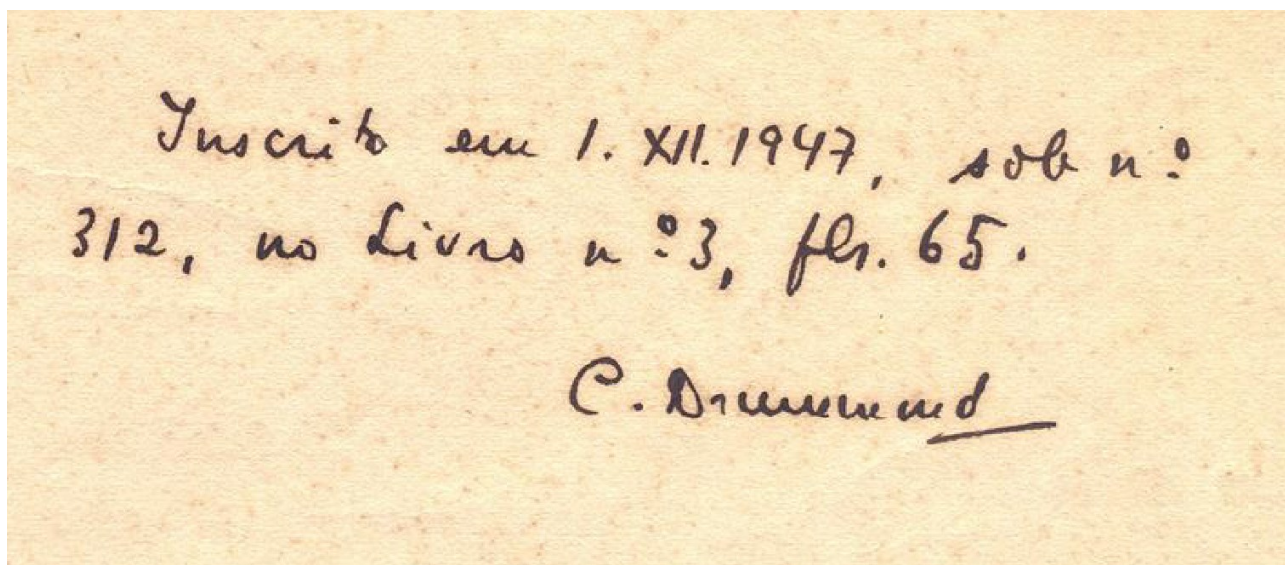 Inscrito em 1. XII. 1947, sob n.º
312, no Livro n.º 3, fls. 65.
C. Drummond